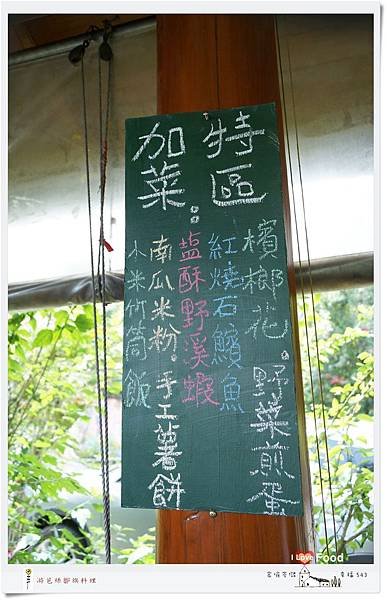 特區
加菜:
檳榔花。野菜煎蛋
紅燒石鱝魚
塩酥野溪蝦
南瓜米粉。手工薯餅
小米竹筒飯
I Love Food
游芭絲鄒族料理
幸福 543